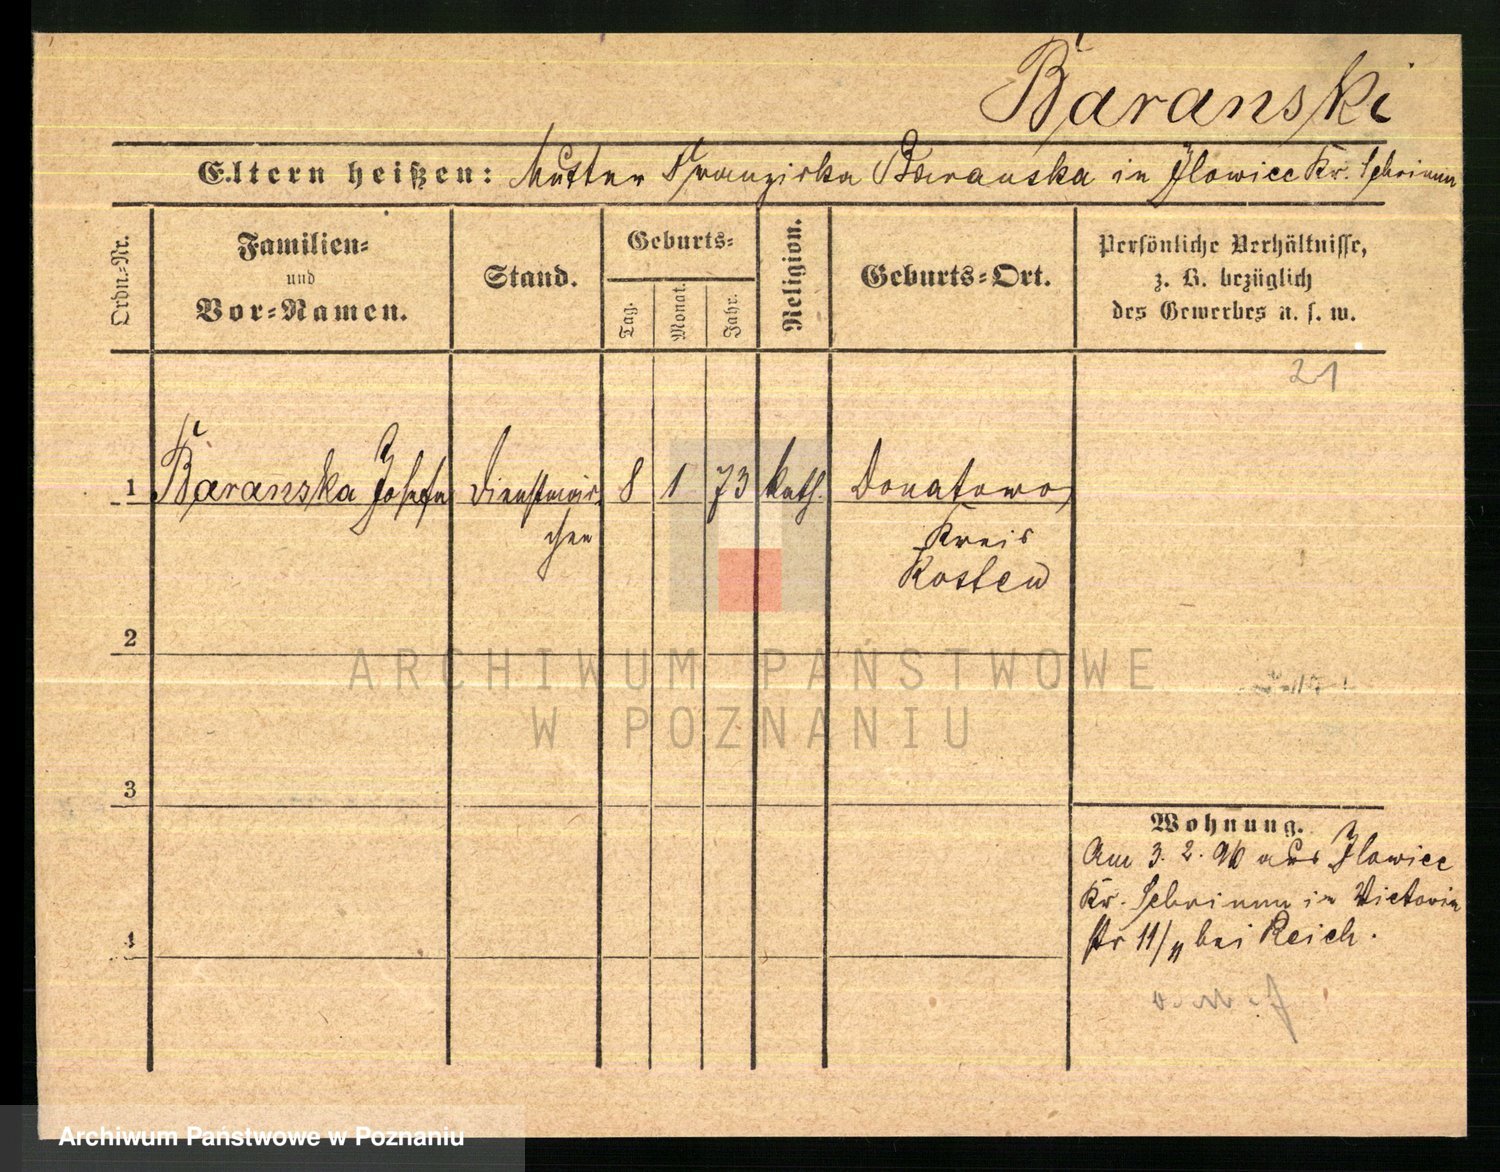 Baranski
Eltern heißen: Mutter Franziska Baranska in Ilowiec Kr. Schrimm
Ordn.-Nr.
Familien-
und
Vor-Namen.
Stand.
Geburts-
Tag.
Monat.
Jahr.
Religion.
Geburts-Ort.
Persönliche Verhältnisse,
z. B. bezüglich
des Gewerbes u. s. w.
21
1 Baranska Josefa Dienstmäd- 8 1 73 kath. Donatowo
chen Kreis
Kosten
2
ARCHIWUM PAŃSTWOWE
W POZNANIU
3
Wohnung.
Am 3. 2. 90 aus Ilowiec
Kr. Schrimm in Victoria
str 11/II bei Reich.
4
Archiwum Państwowe w Poznaniu